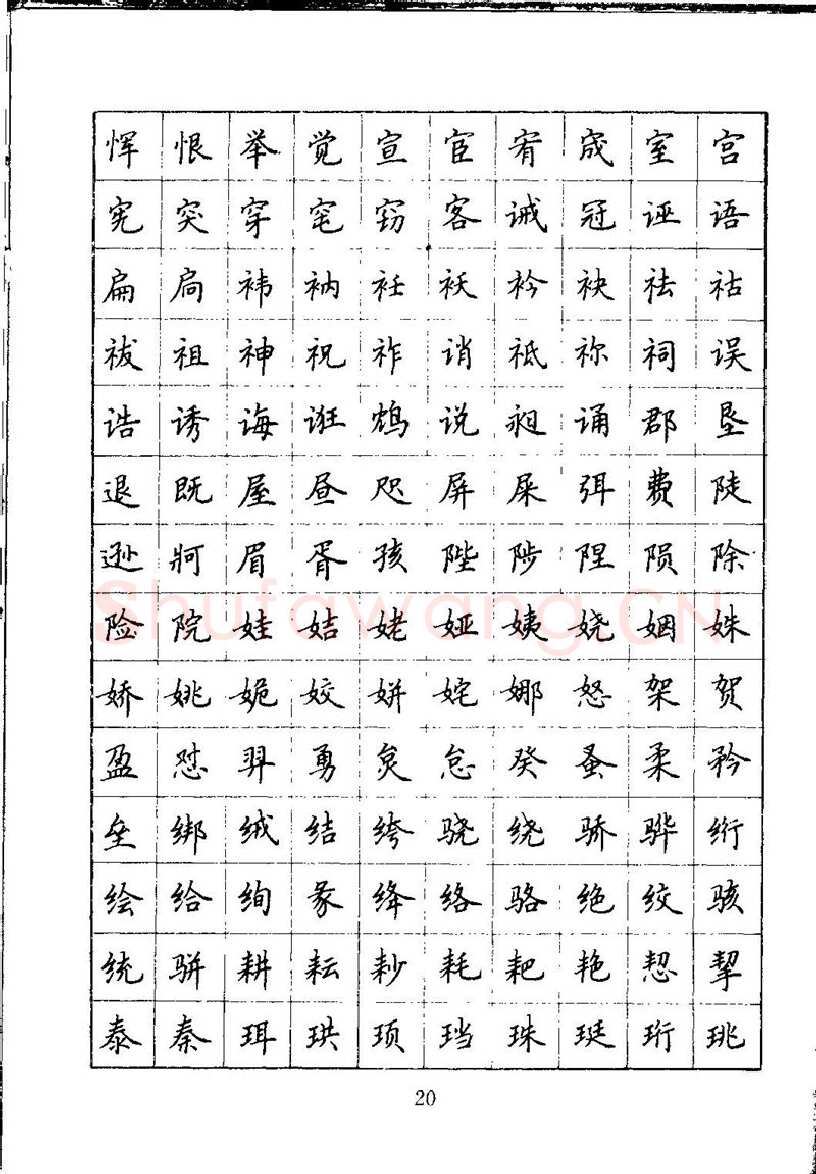 恽恨举觉宣宦宥宬室宫
宪突穿窀窃客诫冠诬语
扁扃袆衲衽袄衿袂祛祜
祓祖神祝祚诮祗祢祠误
诰诱诲诳鸩说昶诵郡垦
退既屋昼咫屏屎弭费陡
逊牁眉胥孩陛陟陧陨除
险院娃姞姥娅姨娆姻姝
娇姚姽姣姘姹娜怒架贺
盈怼羿勇炱怠癸蚤柔矜
垒绑绒结绔骁绕骄骅绗
绘给绚彖绛络骆绝绞骇
统骈耕耘耖耗耙艳恝挈
泰秦珥珙顼珰珠珽珩珧
Shufawang.CN
20